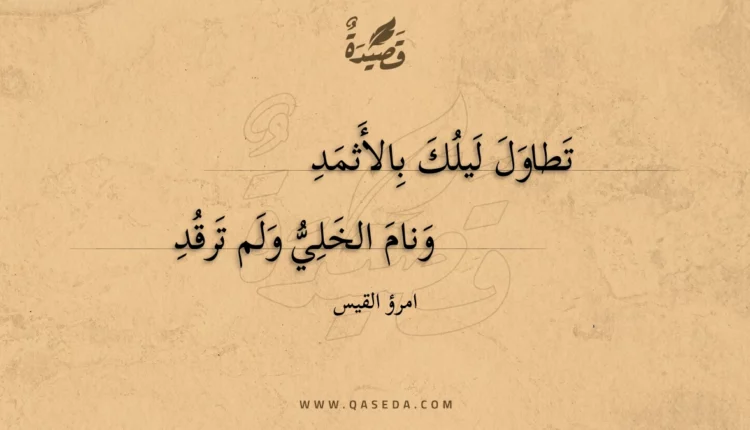 قَصِيْدَةٌ
تَطاوَلَ لَيلُكَ بِالأَثمَدِ
وَنامَ الخَلِيُّ وَلَم تَرقُدِ
امرؤ القيس
WWW.QASEDA.COM